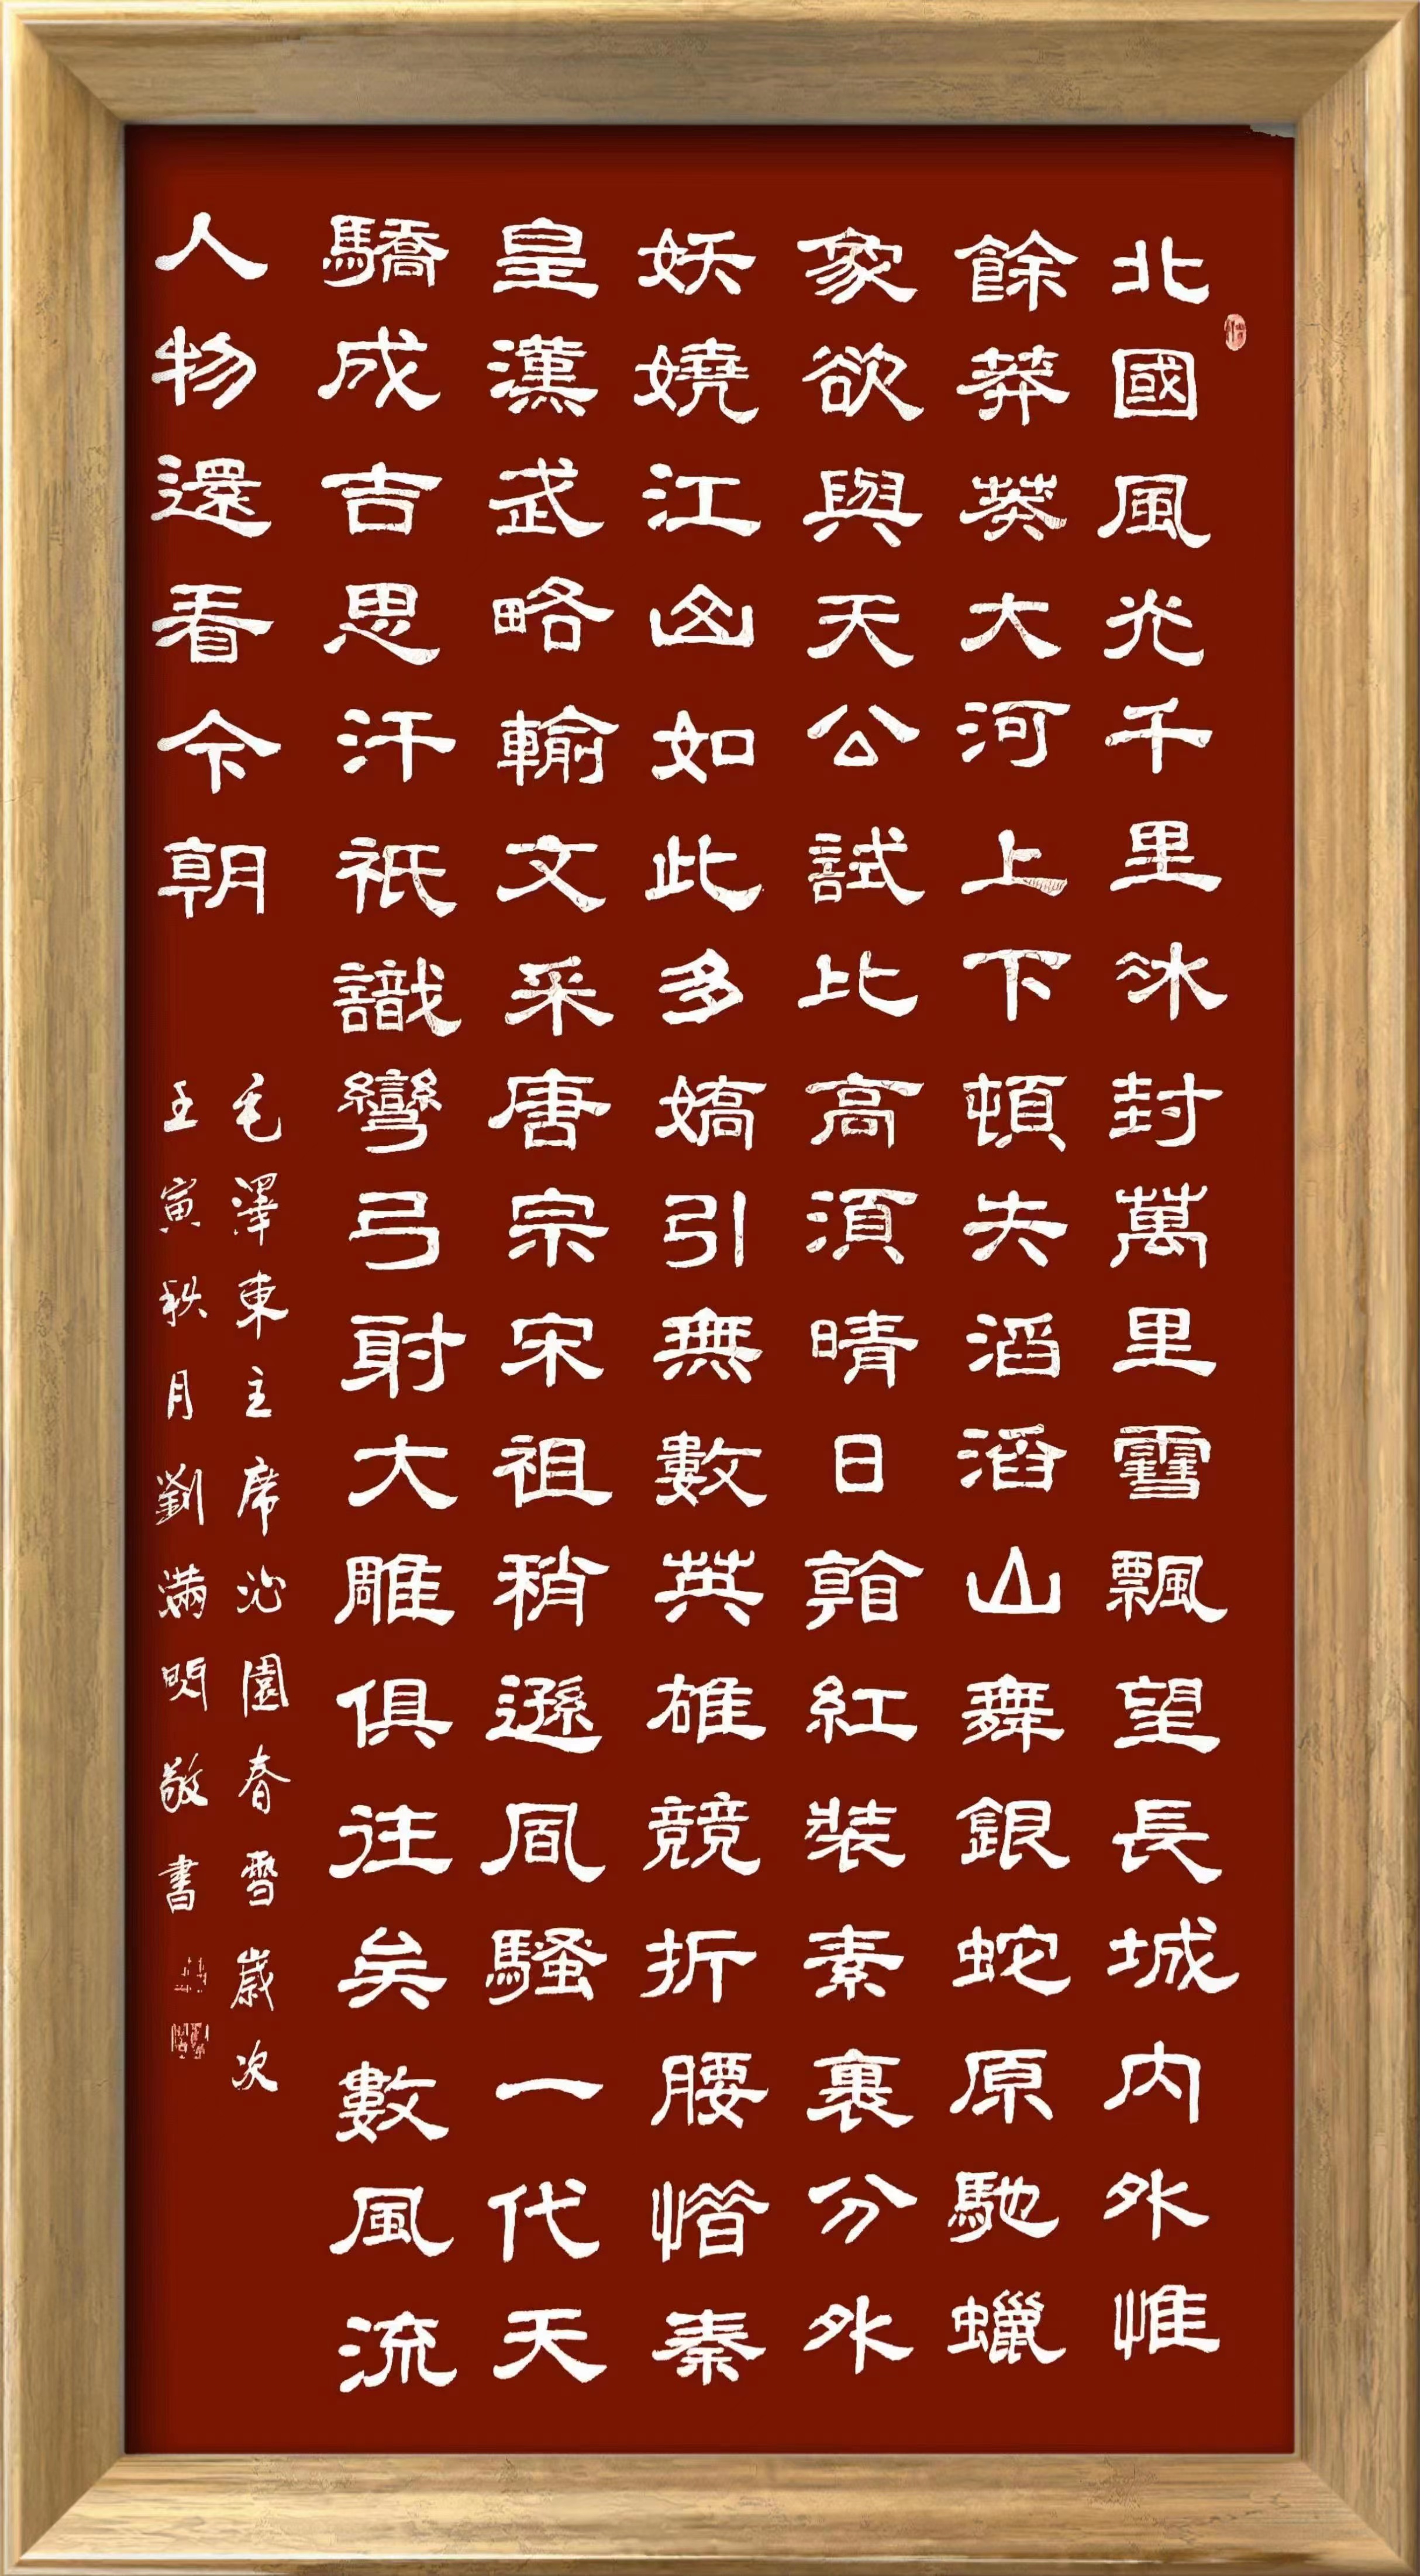 北國風光千里冰封萬里雪飄望長城内外惟
餘莽莽大河上下頓失滔滔山舞銀蛇原馳蠟
象欲與天公試比高須晴日看紅裝素裹分外
妖嬈江山如此多嬌引無數英雄競折腰惜秦
皇漢武略輸文采唐宗宋祖稍遜風騷一代天
驕成吉思汗祇識彎弓射大雕俱往矣數風流
人物還看今朝
毛澤東主席沁園春雪歲次
壬寅秋月劉滿明敬書